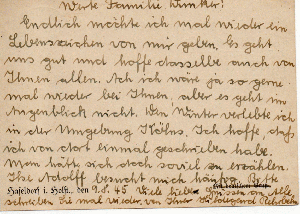 Werte Familie Winkler!
Endlich möchte ich mal wieder ein
Lebenszeichen von mir geben. Es geht
uns gut und hoffe dasselbe auch von
Ihnen allen. Ach ich wäre ja so gerne
mal wieder bei Ihnen, aber es geht im
Augenblick nicht. Den Winter verlebte ich
in der Umgebung Kölns. Ich hoffe, daß
ich von dort einmal geschrieben habe.
Man hätt, sich doch soviel zu erzählen.
Ihre Adolff besucht mich häufig. Bitte
Haßeldorf i. Holst., den 9.8.45 Viele liebe Grüsse alle
schreiben Sie mal wieder von Ihrer Hildegard